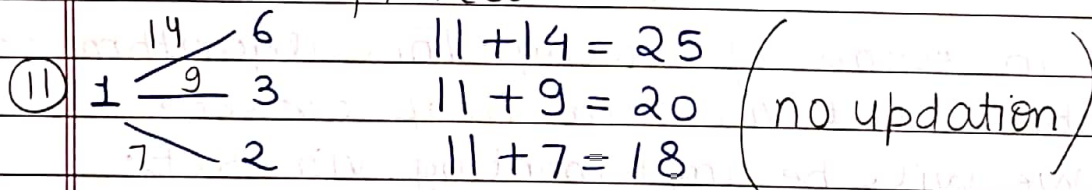 14 6 11 + 14 = 25
11 1 9 3 11 + 9 = 20 (no updation)
7 2 11 + 7 = 18